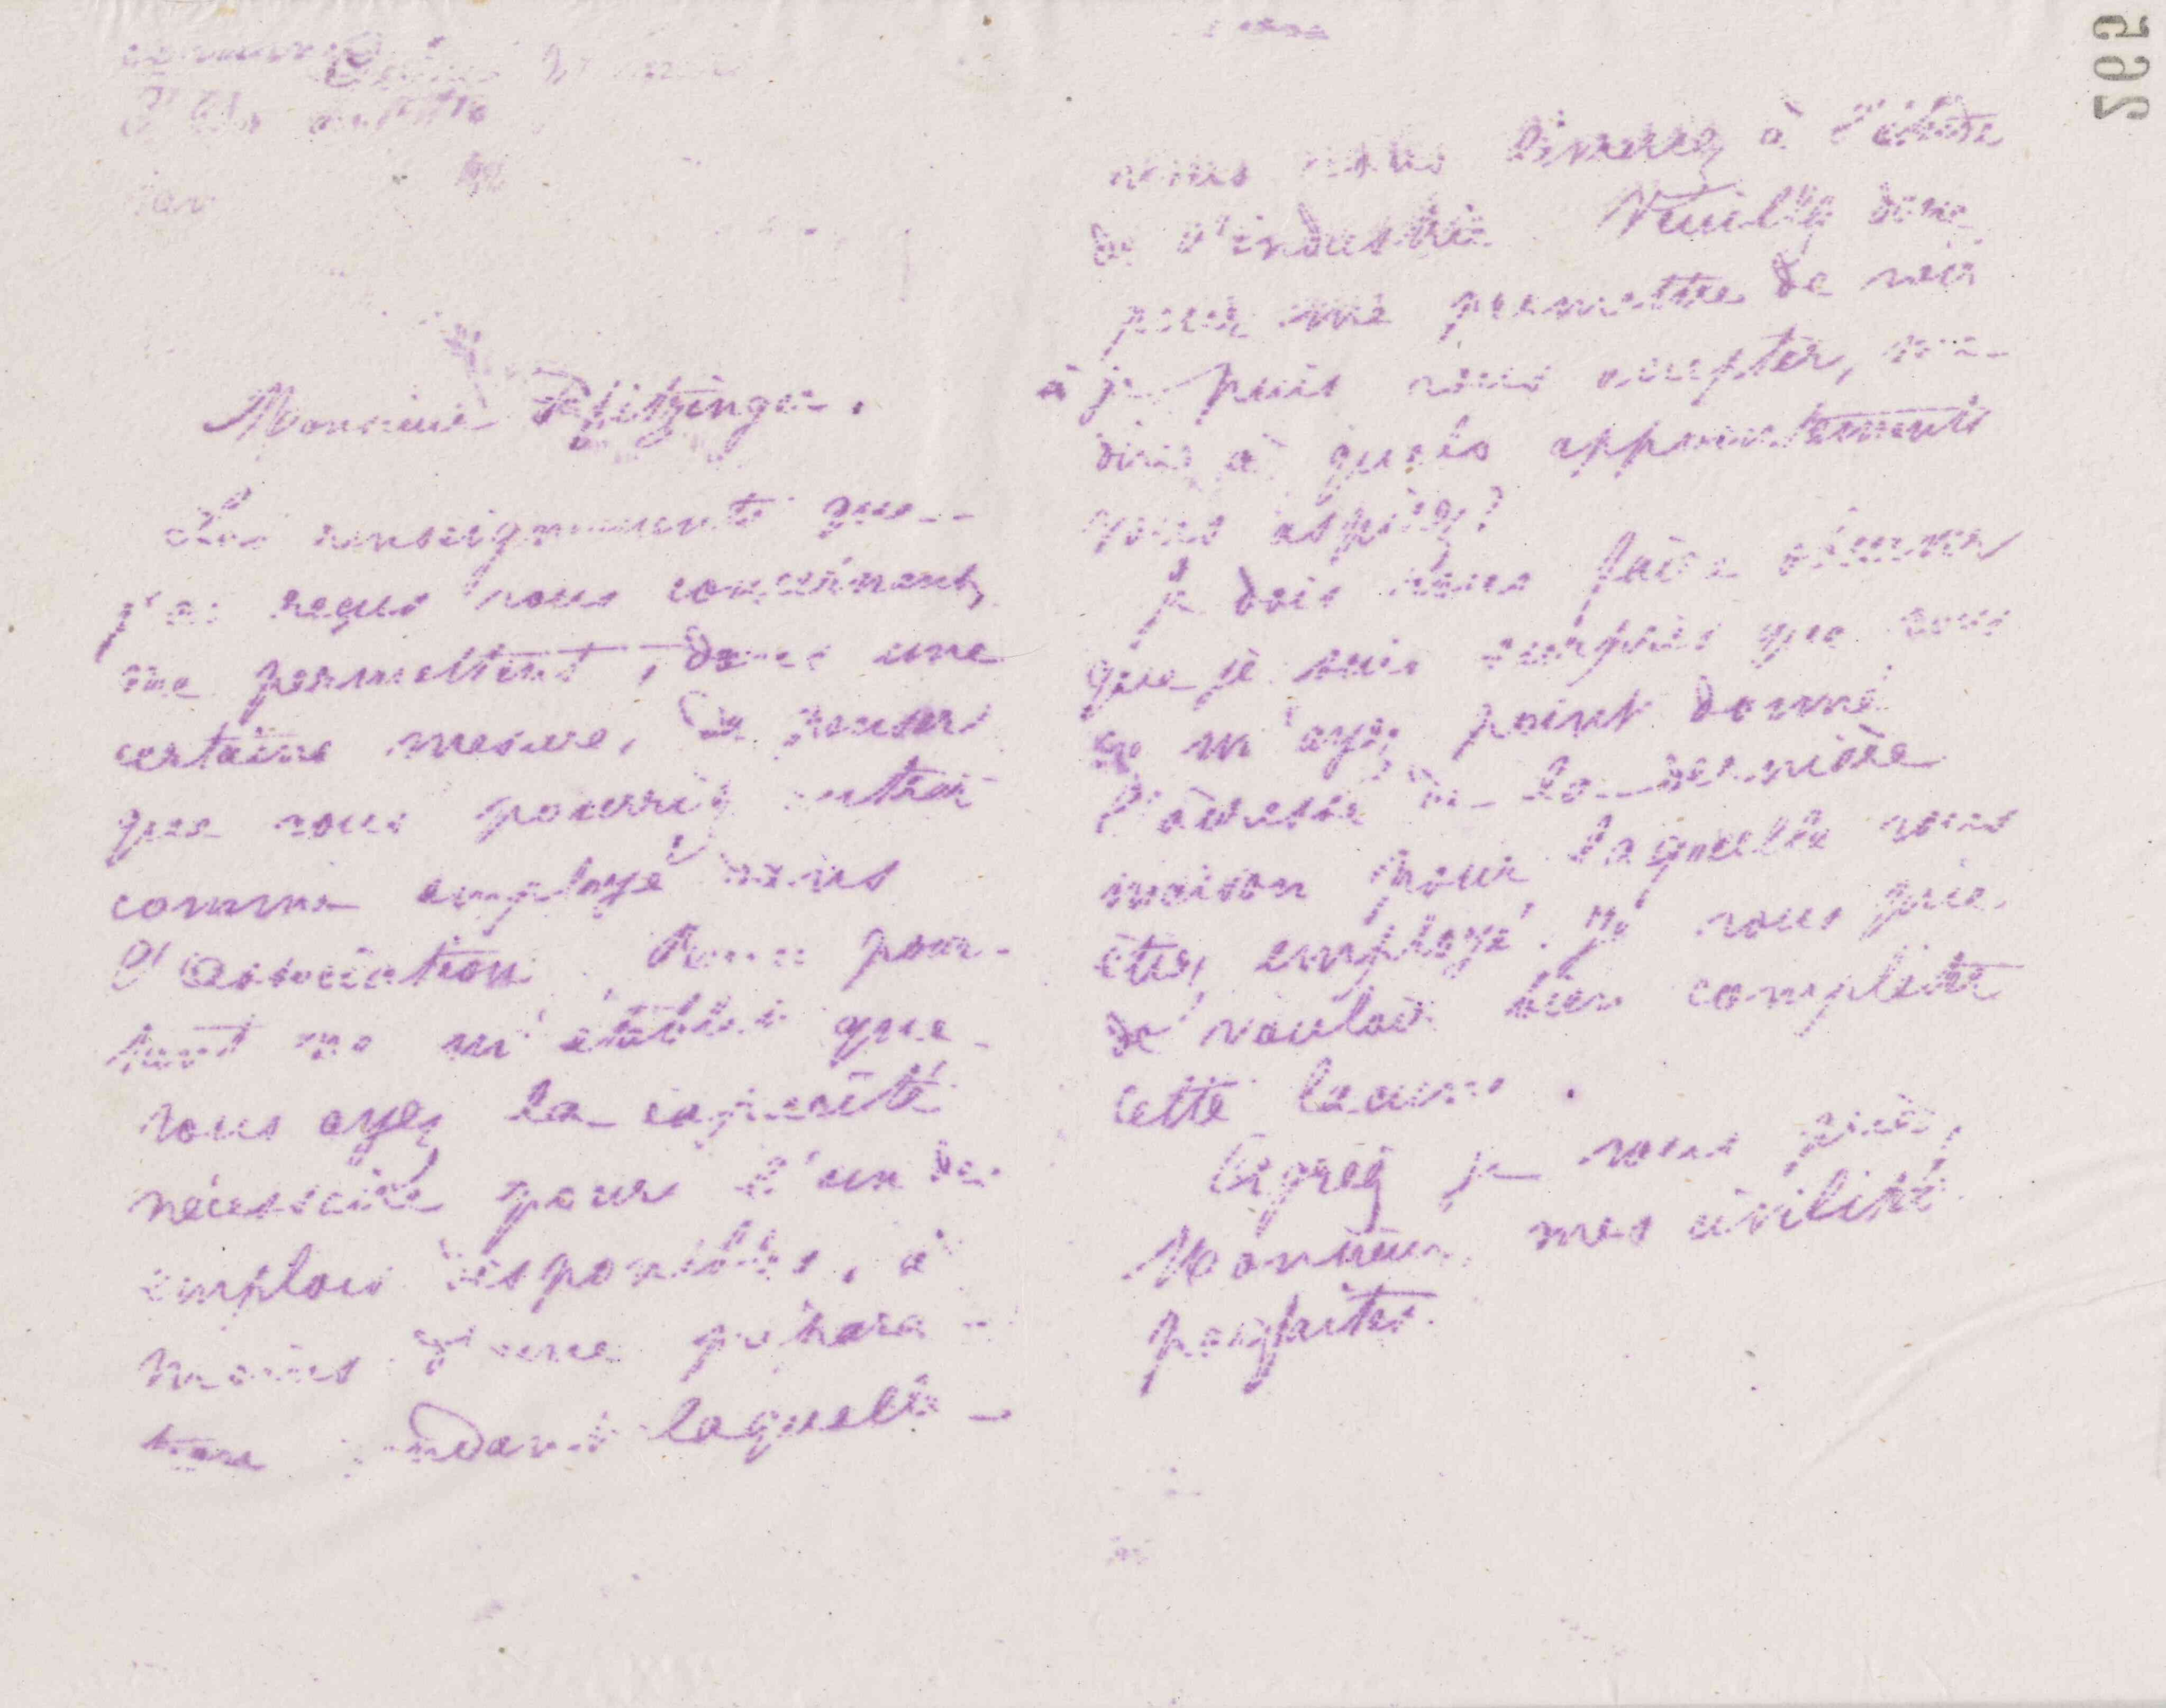 265
Guise 21
Monsieur Pfitzinger.
Les renseignements que
j'ai reçus vous concernant,
me permettent, dans une
certaine mesure, de penser
que vous pourriez entrer
comme employé dans
l'Association. Rien pour-
tant ne m'établit que
vous ayez la capacité
nécessaire pour l'un des
emplois disponibles, à
moins d'une
laquelle
vous vous livrerez à l'étude
de l'industrie. Veuillez donc
pour me permettre de voir
si je puis vous accepter, me
dire à quels appointements
vous aspirez?
Je dois vous faire observer
que je suis surpris que vous
ne m'ayez point donné
l'adresse de la dernière
maison pour laquelle vous
étiez employé. Je vous prie
de vouloir bien compléter
cette lacune.
Agréez je vous prie,
Monsieur, mes civilités
parfaites.